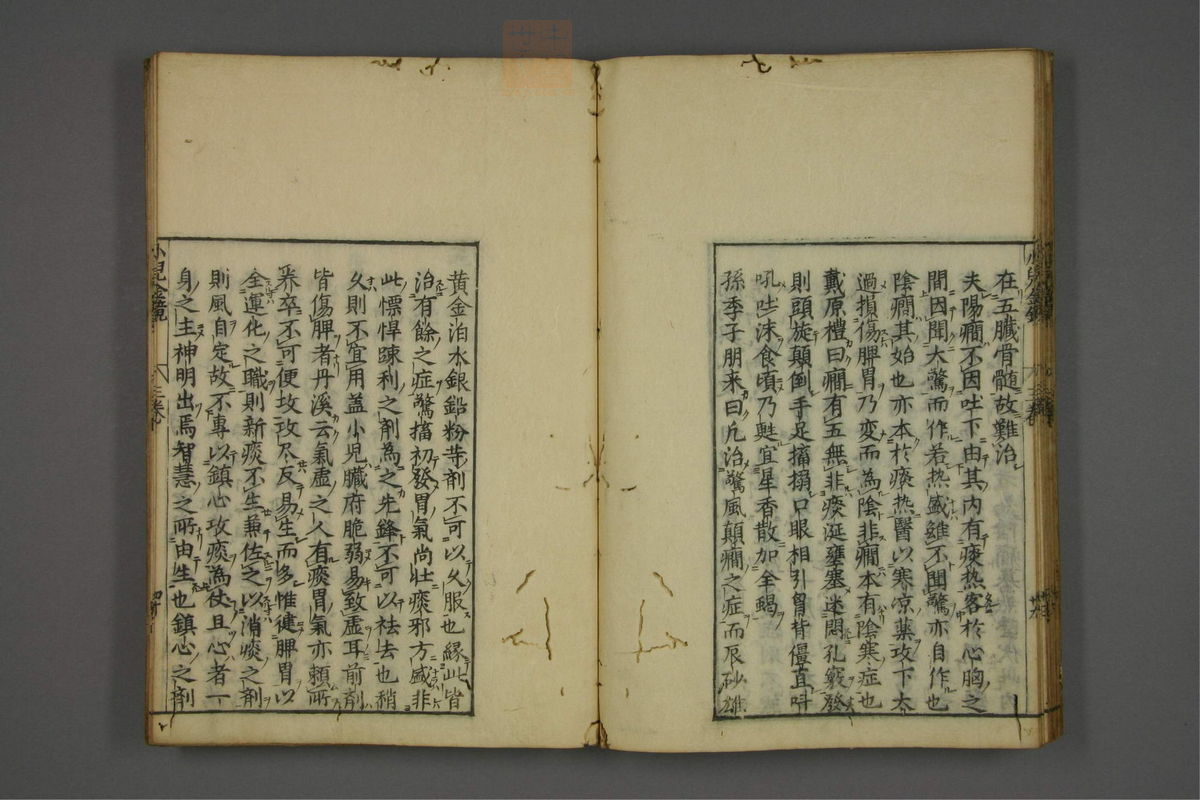 在五臟骨髓故難治
夫陽癇不因吐下由其内有痰热客於心胸之
間因聞大驚而作若热盛雖不聞驚亦自作也
陰癇其始也亦本於痰热醫以寒凉藥攻下太
過損傷脾胃乃变而為陰非癇本有陰寒症也
戴原禮曰癇有五無非痰涎壅塞迷悶孔竅發
則頭旋顛倒手足搐搦口眼相引胷背僵直叫
吼吐沫食頃乃甦宜犀香散加全蝎
孫季子朋来曰凢治驚風顛癇之症而辰砂雄
黄金泊水銀鉛粉䓁剤不可以久服也緣此皆
治有餘之症驚搐初發胃氣尚壯痰邪方盛非
此慓悍踈利之剤為之先鋒不可以袪去也稍
久則不宜用盖小児臓府脆弱易致虚耳前剤
皆傷脾者丹溪云氣虚之人有痰胃氣亦頼所
养卒不可便攻攻尽反易生而多惟健脾胃以
全運化之職則新痰不生兼佐之以消痰之剤
則風自定故不專以鎮心攻痰為仗且心者一
身之主神明出焉智慧之所由生也鎮心之剤
小兒金鏡
三卷